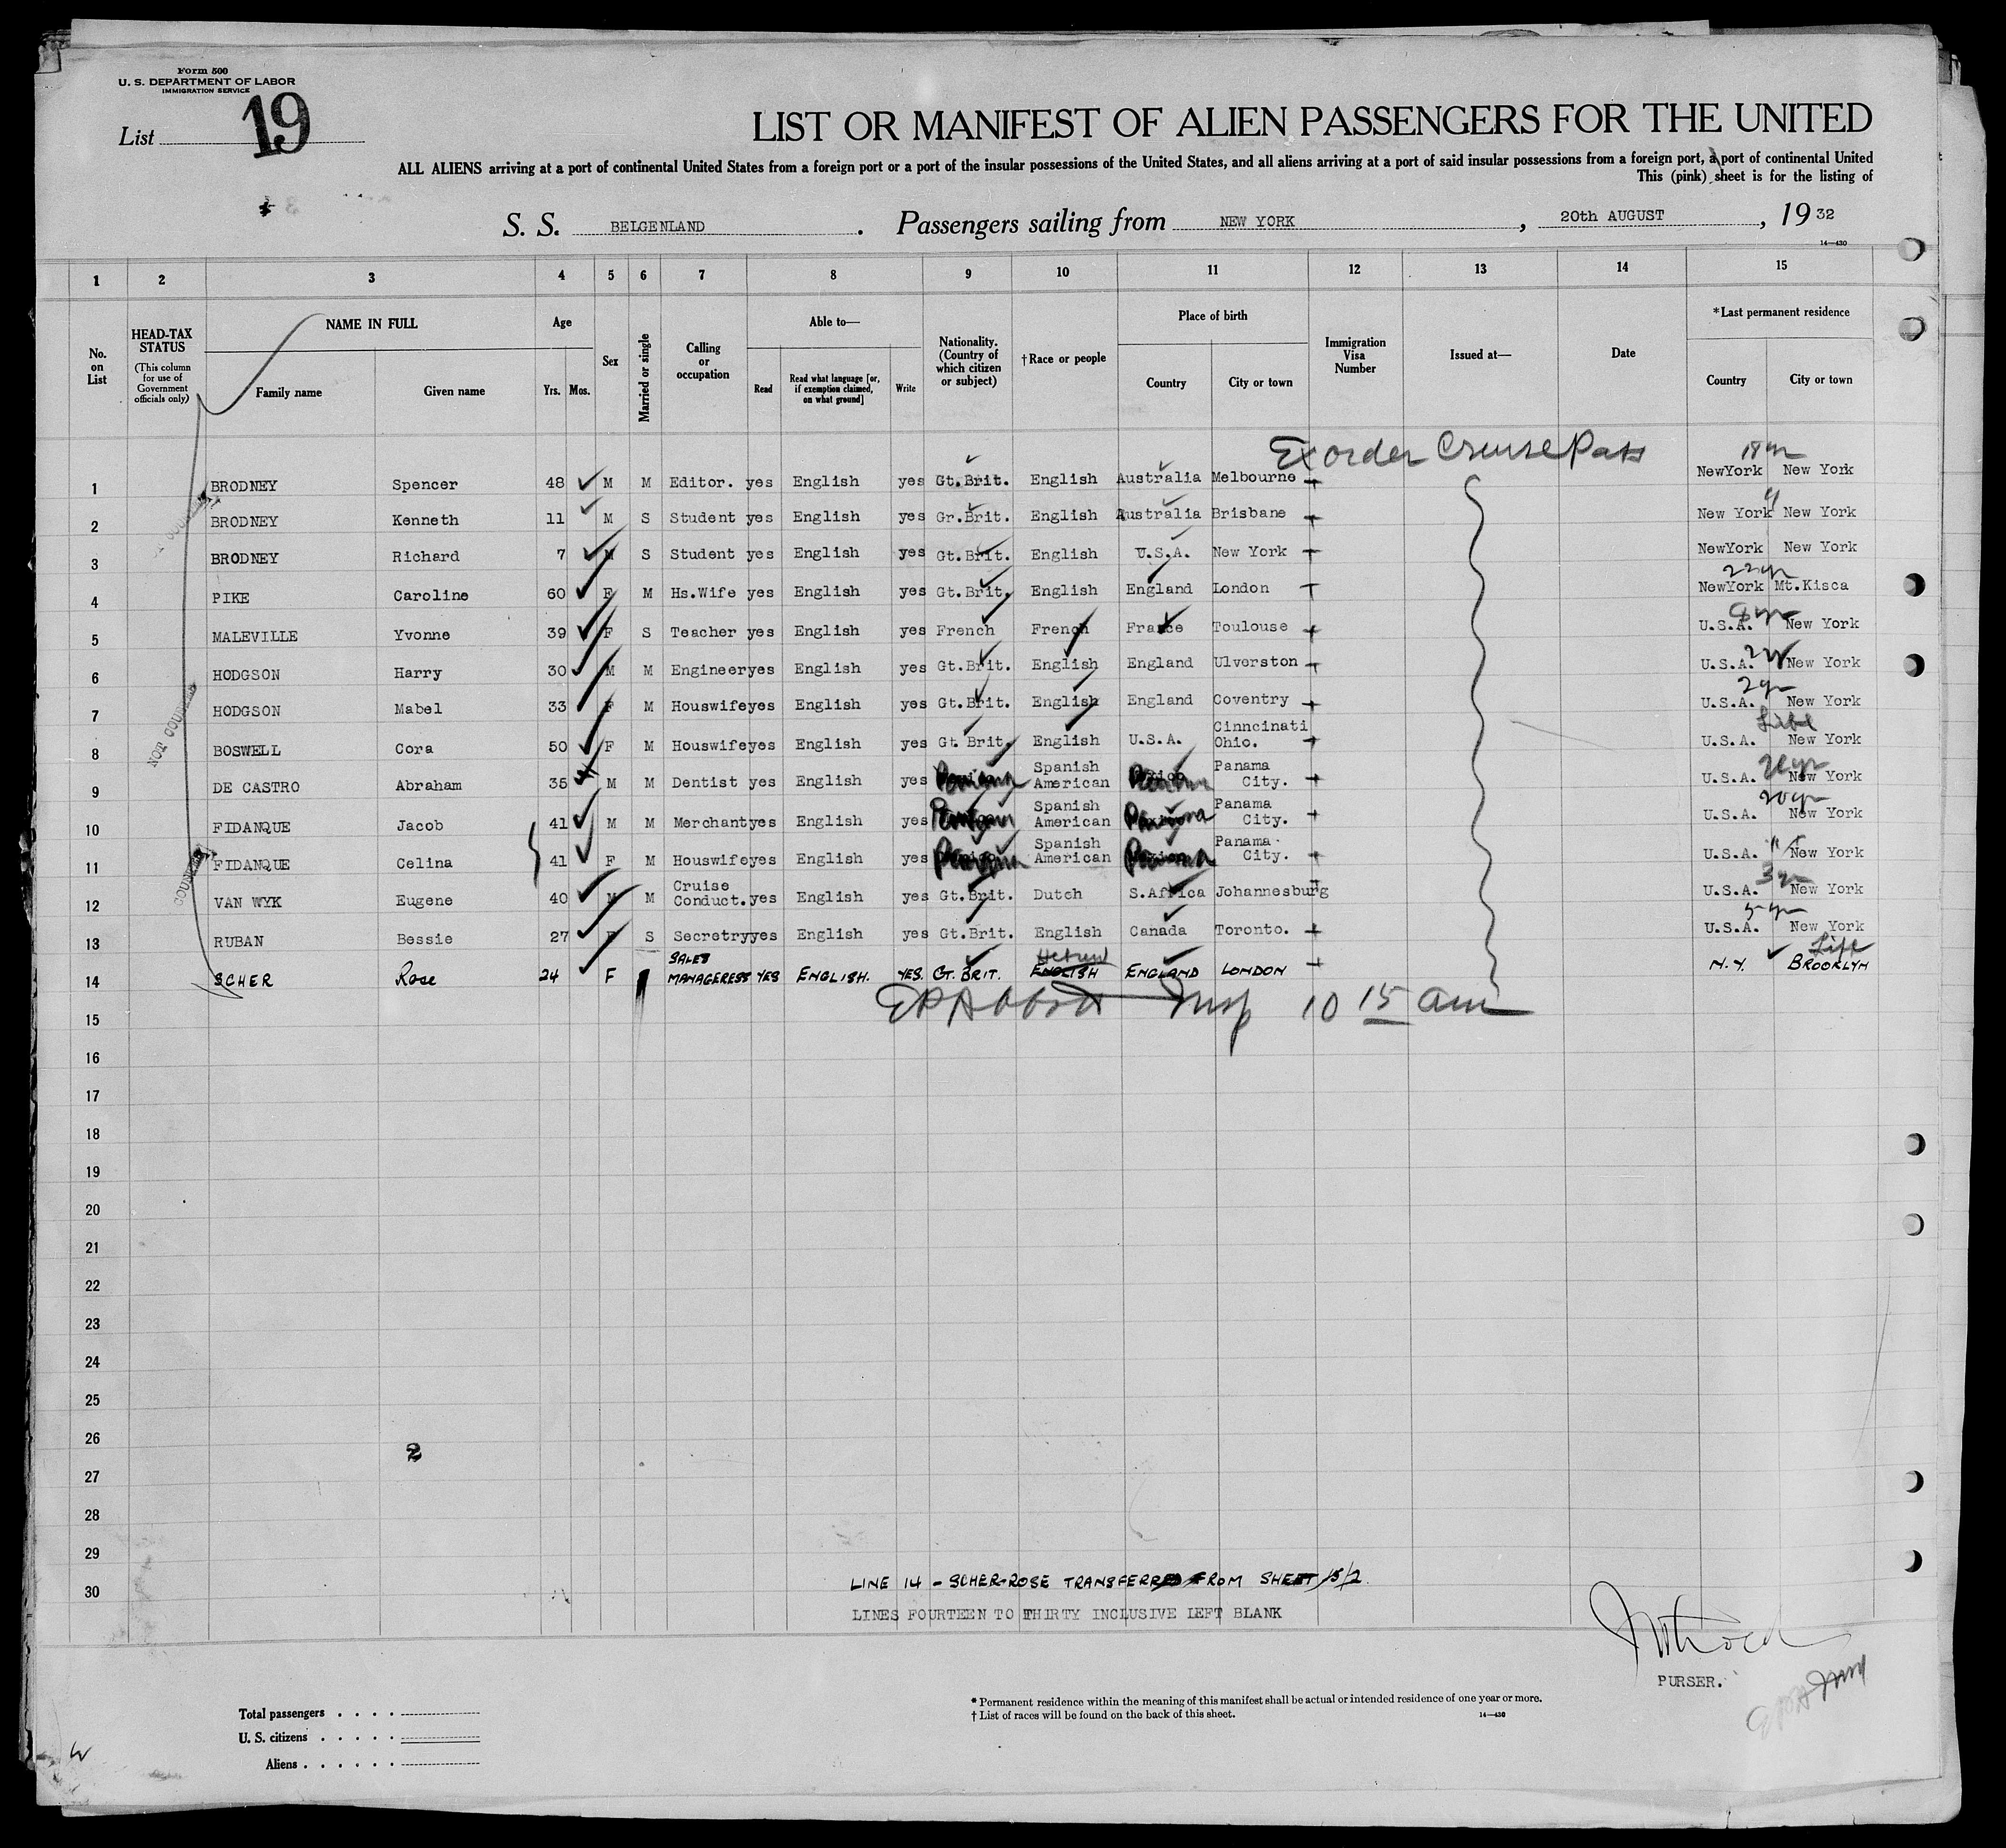 Form 500
U. S. DEPARTMENT OF LABOR
IMMIGRATION SERVICE
List 19
LIST OR MANIFEST OF ALIEN PASSENGERS FOR THE UNITED
ALL ALIENS arriving at a port of continental United States from a foreign port or a port of the insular possessions of the United States, and all aliens arriving at a port of said insular possessions from a foreign port, a port of continental United
This (pink) sheet is for the listing of
S. S. BELGENLAND. Passengers sailing from NEW YORK, 20th AUGUST, 19 32
14—430
1 2 3 4 5 6 7 8 9 10 11 12 13 14 15
No. on List
HEAD-TAX STATUS (This column for use of Government officials only)
NAME IN FULL Family name Given name
Age Yrs. Mos.
Sex
Married or single
Calling or occupation
Able to— Read Read what language [or, if exemption claimed, on what ground] Write
Nationality. (Country of which citizen or subject)
†Race or people
Place of birth Country City or town
Immigration Visa Number
Issued at—
Date
*Last permanent residence Country City or town
Ex order Cruise Pass
18 yr
1 BRODNEY Spencer 48 M M Editor. yes English yes Gt.Brit. English Australia Melbourne NewYork New York
2 BRODNEY Kenneth 11 M S Student yes English yes Gr.Brit. English Australia Brisbane New York New York
3 BRODNEY Richard 7 M S Student yes English yes Gt.Brit. English U.S.A. New York NewYork New York
22 yr
4 PIKE Caroline 60 F M Hs.Wife yes English yes Gt.Brit. English England London NewYork Mt.Kisca
5 MALEVILLE Yvonne 39 F S Teacher yes English yes French French France Toulouse U.S.A. New York
6 HODGSON Harry 30 M M Engineer yes English yes Gt.Brit. English England Ulverston U.S.A. New York
2 yr
7 HODGSON Mabel 33 F M Houswife yes English yes Gt.Brit. English England Coventry U.S.A. New York
Life
8 BOSWELL Cora 50 F M Houswife yes English yes Gt.Brit. English U.S.A. Cinncinati Ohio. U.S.A. New York
9 DE CASTRO Abraham 35 M M Dentist yes English yes Spanish American Panama City. U.S.A. New York
20 yr
10 FIDANQUE Jacob 41 M M Merchant yes English yes Spanish American Panama Panama City. U.S.A. New York
11 FIDANQUE Celina 41 F M Houswife yes English yes Spanish American Panama Panama City. U.S.A. New York
3 yr
12 VAN WYK Eugene 40 M M Cruise Conduct. yes English yes Gt.Brit. Dutch S.Africa Johannesburg U.S.A. New York
5 yr
13 RUBAN Bessie 27 F S Secretry yes English yes Gt.Brit. English Canada Toronto. U.S.A. New York
Hebrew
Life
14 SCHER Rose 24 F SALES MANAGERESS YES ENGLISH. YES. GT. BRIT. ENGLISH ENGLAND LONDON N.Y. BROOKLYN
NOT COUNTED
COUNTED
15 Insp 10 15 am
16
17
18
19
20
21
22
23
24
25
26
2
27
28
29
30
LINE 14 - SCHER-ROSE TRANSFERRED FROM SHEET 15/2.
LINES FOURTEEN TO THIRTY INCLUSIVE LEFT BLANK
PURSER.
Total passengers
U. S. citizens
Aliens
* Permanent residence within the meaning of this manifest shall be actual or intended residence of one year or more.
† List of races will be found on the back of this sheet.
14—430